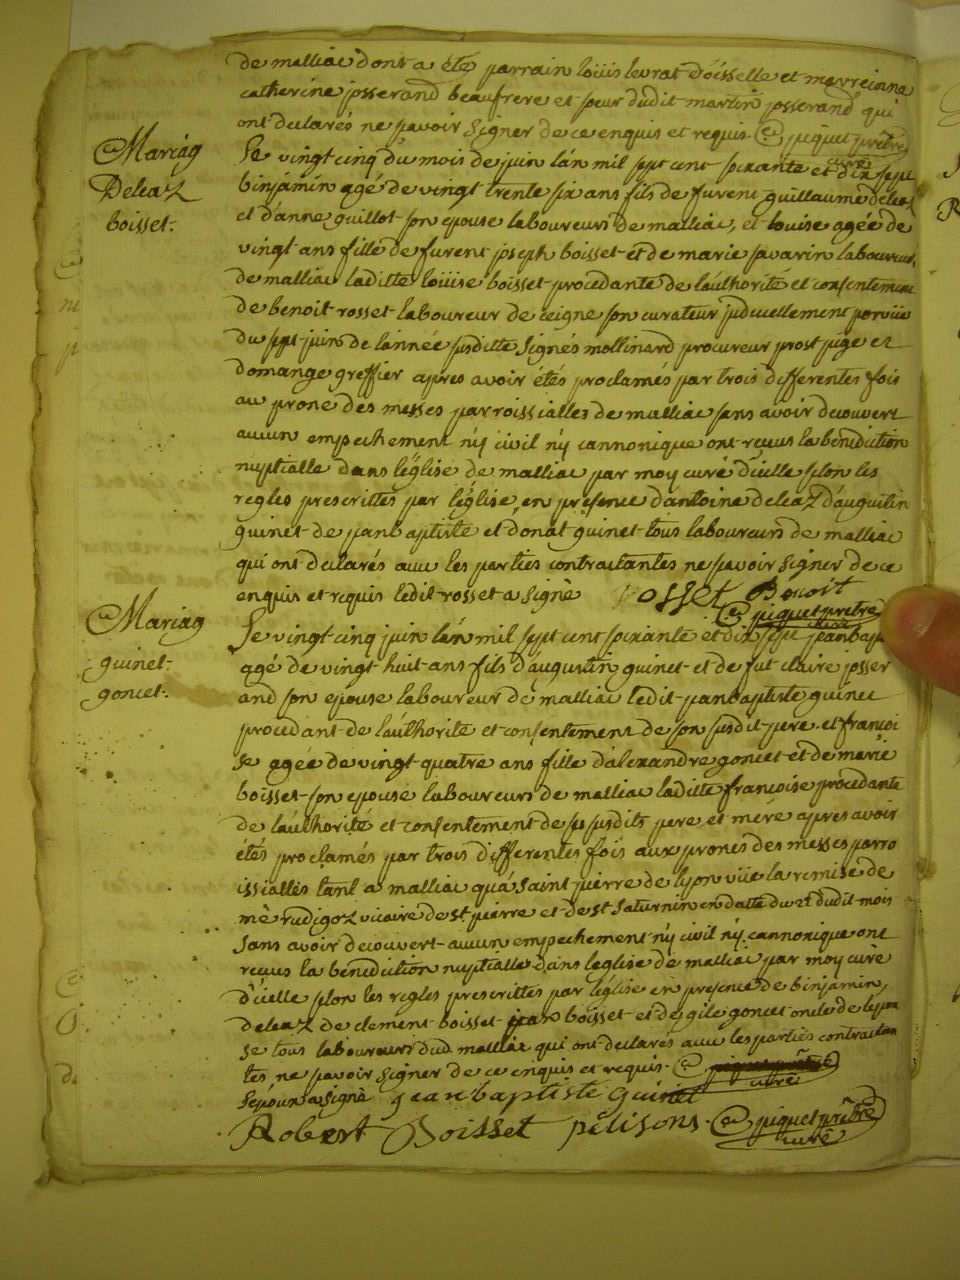 de malliac dont a été parrain loüis levrat doisselle et marreinne
catherine josserand beaufrere et sœur dudit martin josserand qui
ont declarés ne savoir signer de ce enquis et requis. piquet prêbre
curé
Mariag
Deleaz
boisset.
Le vingt cinq du mois de juin l'an mil sept cent soixante et dix sept
binjamin agé de vingt trente six ans fils de furent guillaume deleaz
et d'anne guillot son epouse laboureurs de malliac, et louise agée de
vingt ans fille de furent joseph boisset et de marie savarin laboureurs
de malliac laditte loüise boisset procedante de l'authorité et consentement
de benoit rosset laboureur de ceigne son curateur judiciellement porvüe
du sept juin de lannée susditte signés mollinard procureur prost juge et
domange greffier apres avoir étés proclamés par trois differentes fois
au prone des messes parroissialles de malliac sans avoir decouvert
aucun empechement n'y civil n'y cannonique ont reçus la bénédiction
nuptialle dans l'église de malliac par moy curé d'icelle selon les
regles prescrittes par l'église en présence d'antoine deleaz d'auguitin
guinet de jeanbaptiste et donat guinet tous laboureurs de malliac
qui ont declarés avec les parties contractantes ne savoir signer de ce
enquis et requis ledit rosset a signé Rosset Benoit
piquet prêtre
curé
Mariag
guinet
goncet.
Le vingt cinq juin l'an mil sept cent soixante et dix sept jeanbap
agé de vingt huit ans fils d'augustin guinet et de fut claire josser
and son epouse laboureur de malliac ledit jeanbaptiste guinet
procedant de l'authorité et consentement de son susdit pere et françoi
se agée de vingt quatre ans fille d'alexandre goncet et de marie
boisset son epouse laboureurs de malliac laditte françoise procedante
de l'authorité et consentement de ses susdits pere et meré apres avoir
étés proclamés par trois differentes fois aux prones des messes parro
issialles tant a malliac qu'a saint pierre de lyon vüe la remise de
mê rudigoz vicaire de st pierre et de st saturnin en datte du 21 dudit mois
sans avoir decouvert aucun empechement n'y civil n'y cannonique ont
reçus la bénédiction nuptialle dans l'église de malliac par moy curé
d'icelle selon les regles prescrittes par l'église en presence de binjamin
deleaz de clement boisset jean boisset et de gile goncet oncle de lepou
se tous laboureurs dud. malliac qui ont declarés avec les parties contractan
tes ne savoir signer de ce enquis et requis. piquet prêtre
curé
l'epoux a signé jean baptiste guinet
Robert Boisset pelisons. piquet prêbre
curé